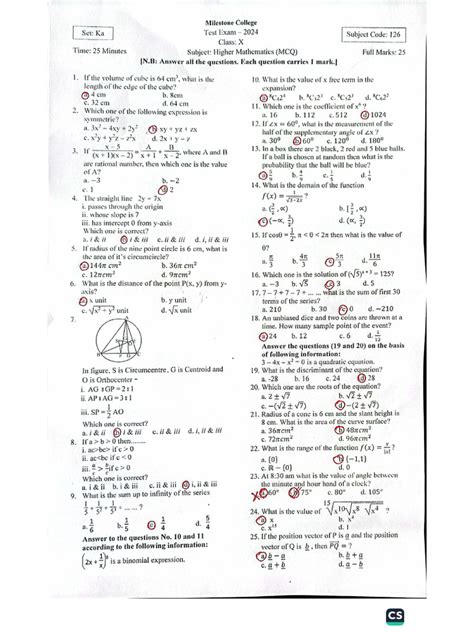 Milestone College
Set: Ka
Test Exam – 2024
Subject Code: 126
Class: X
Time: 25 Minutes
Subject: Higher Mathematics (MCQ)
Full Marks: 25
[N.B: Answer all the questions. Each question carries 1 mark.]
1. If the volume of cube is 64 cm³, what is the
length of the edge of the cube?
a. 4 cm b. 8cm
c. 32 cm d. 64 cm
2. Which one of the following expression is
symmetric?
a. 3x² – 4xy + 2y² b. xy + yz + zx
c. x²y + y²z – z²x d. 2x + y – z
3. If (x – 5)/((x + 1)(x – 2)) = A/(x + 1) + B/(x – 2), where A and B
are rational number, then which one is the value
of A?
a. –3 b. –2
c. 1 d. 2
4. The straight line 2y = 7x
i. passes through the origin
ii. whose slope is 7
iii. has intercept 0 from y-axis
Which one is correct?
a. i & ii b. i & iii c. ii & iii d. i, ii & iii
5. If radius of the nine point circle is 6 cm, what is
the area of it's circumcircle?
a. 144π cm² b. 36π cm²
c. 12π cm² d. 9π cm²
6. What is the distance of the point P(x, y) from y-
axis?
a. x unit b. y unit
c. √(x² + y²) unit d. √x unit
7.
In figure, S is Circumcentre, G is Centroid and
O is Orthocenter –
i. AG : GP = 2 : 1
ii. AP : AG = 3 : 1
iii. SP = 1/2 AO
Which one is correct?
a. i & ii b. i & iii c. ii & iii d. i, ii & iii
8. If a > b > 0 then.......
i. ac > bc if c > 0
ii. ac < bc if c < 0
iii. a/c > b/c if c > 0
Which one is correct?
a. i & ii b. i & iii c. ii & iii d. i, ii & iii
9. What is the sum up to infinity of the series
a. 1/6 b. 1/5 c. 1/4 d.
Answer to the questions No. 10 and 11
according to the following information:
is a binomial expression.
10. What is the value of x free term in the
expansion?
11. Which one is the coefficient of x⁶ ?
a. 16 b. 112 c. 512 d. 1024
12. If ∠x = 60⁰, what is the measurement of the
half of the supplementary angle of ∠x ?
a. 30⁰ b. 60⁰ c. 120⁰ d. 180⁰
13. In a box there are 2 black, 2 red and 5 blue balls.
If a ball is chosen at random then what is the
probability that the ball will be blue?
14. What is the domain of the function
f(x) = 1/√(3–2x) ?
15. If cosθ = 1/2, π < θ < 2π then what is the value of
θ?
a. π/3 b. 4π/3 c. 5π/3 d. 11π/6
16. Which one is the solution of = 125?
a. –3 b. √5 c. 3 d. 5
17. 7 – 7 + 7 – 7 + ... ... what is the sum of first 30
terms of the series?
a. 210 b. 30 c. 0 d. –210
18. An unbiased dice and two coins are thrown at a
time. How many sample point of the event?
a. 24 b. 12 c. 6 d. 4
Answer the questions (19 and 20) on the basis
of following information:
3 – 4x – x² = 0 is a quadratic equation.
19. What is the discriminant of the equation?
a. -28 b. 16 c. 24 d. 28
20. Which one are the roots of the equation?
a. 2 ± √7 b. √2 ± √7
c. –(√2 ± √7) d. –(2 ± √7)
21. Radius of a cone is 6 cm and the slant height is
8 cm. What is the area of the curve surface?
a. 36πcm² b. 48πcm²
c. 72πcm² d. 96πcm²
22. What is the range of the function
a. {0} b. {–1,1}
c. R – {0} d. R
23. At 8:30 am what is the value of angle between
the minute and hour hand of a clock?
a. 60° b. 75° c. 80° d. 105°
24. What is the value of
a. x b. x⁴
c. x¹⁵ d. 1
25. If the position vector of P is a and the position
vector of Q is b , then PQ = ?
a. b – a b. b + a
c. a + b d. a – b
CS